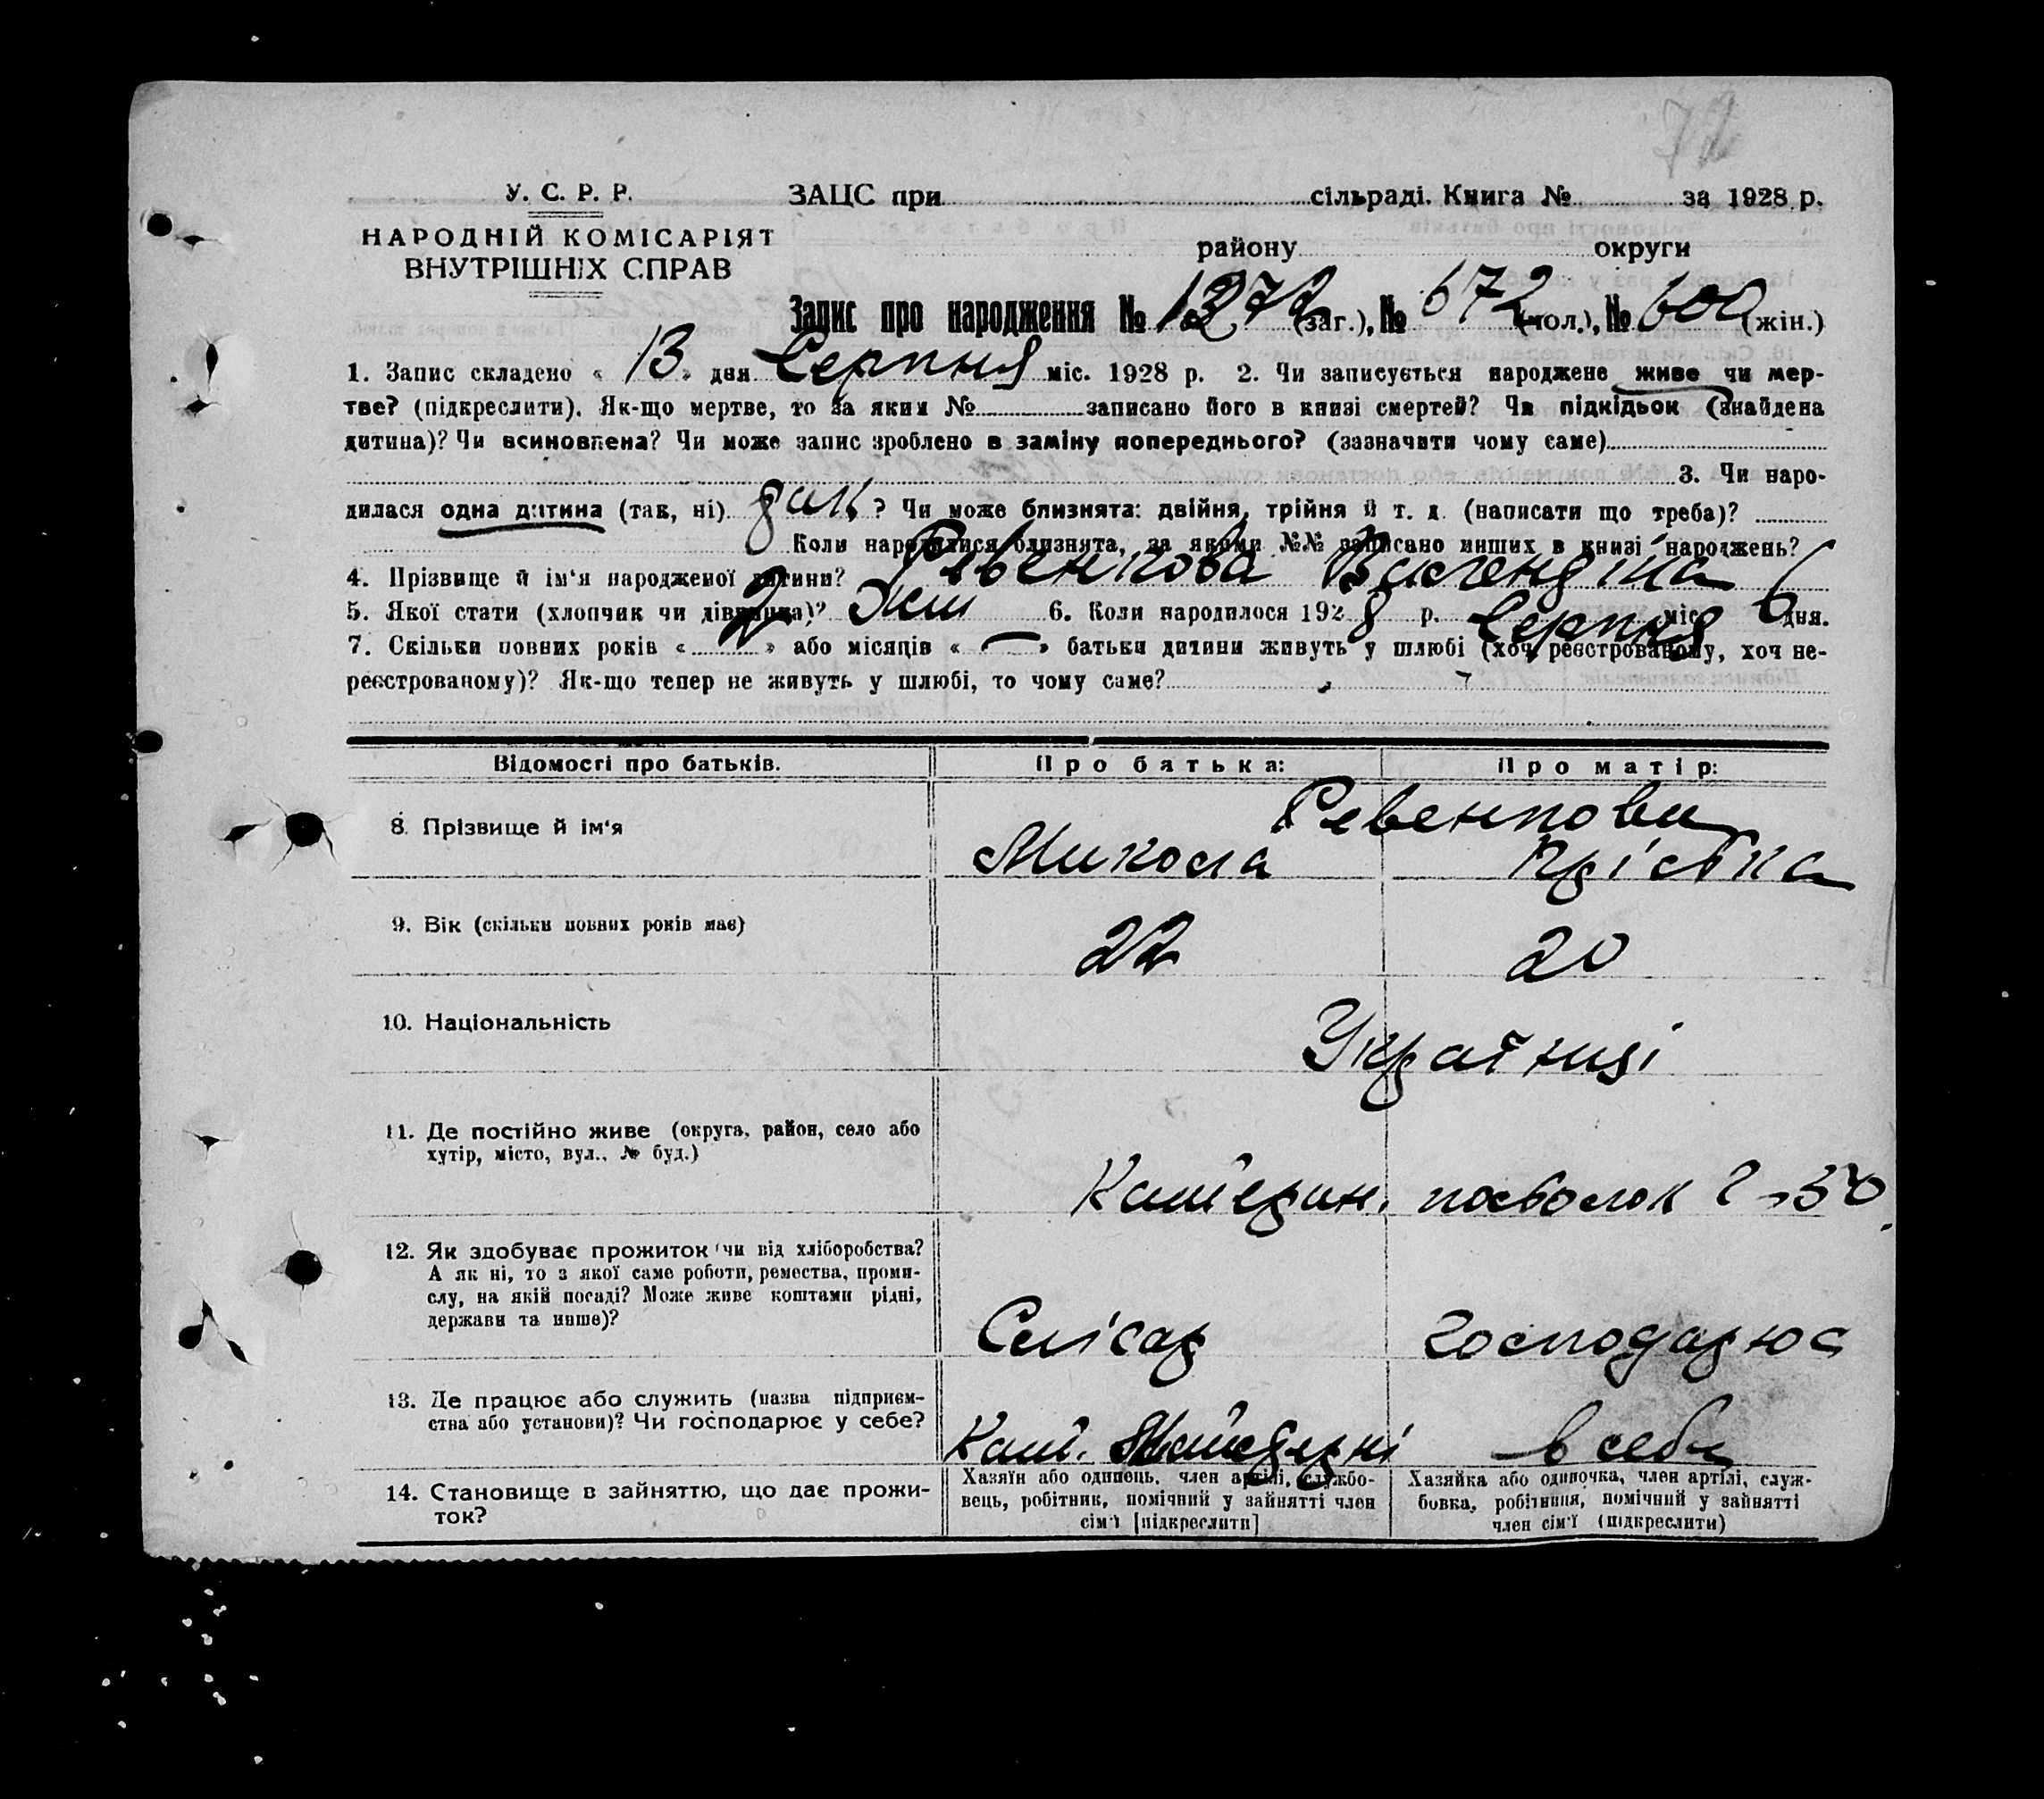 72
У. С. Р. Р.
ЗАЦС при сільраді. Книга № за 1928 р.
НАРОДНІЙ КОМІСАРІЯТ
ВНУТРІШНІХ СПРАВ
району округи
Запис про народження № 1272 (заг.), № 672 (чол.), № 600 (жін.)
1. Запис складено « 13 » дня Серпня міс. 1928 р. 2. Чи записується народжене живе чи мер-
тве? (підкреслити). Як-що мертве, то за яким № записано його в книзі смертей? Чи підкідьок (знайдена
дитина)? Чи всиновлена? Чи може запис зроблено в заміну попереднього? (зазначити чому саме)
3. Чи наро-
дилася одна дитина (так, ні) так ? Чи може близнята: двійня, трійня й т. д. (написати що треба)?
Коли народилися близнята, за якими №№ записано инших в книзі народжень?
4. Прізвище й ім'я народженої дитини? Ревенкова Валендіна
5. Якої стати (хлопчик чи дівчинка)? Жін 6. Коли народилося 1928 р. Серпня міс. 6 дня.
7. Скільки повних років « 2 » або місяців « — » батьки дитини живуть у шлюбі (хоч реєстрованому, хоч не-
реєстрованому)? Як-що тепер не живуть у шлюбі, то чому саме?
Відомості про батьків. Про батька: Про матір:
Ревенкови
8. Прізвище й ім'я Микола Крістка
9. Вік (скільки повних років має) 22 20
10. Національність Українці
11. Де постійно живе (округа, район, село або
хутір, місто, вул., № буд.)
Катерин. посьолок
12. Як здобуває прожиток чи від хліборобства?
А як ні, то з якої саме роботи, ремества, проми-
слу, на якій посаді? Може живе коштами рідні,
держави та инше)?
Слісар Господарює
13. Де працює або служить (назва підприєм-
ства або установи)? Чи господарює у себе?
Кат. в себе
14. Становище в зайняттю, що дає прожи-
ток?
Хазяїн або одинець, член артілі, службо-
вець, робітник, помічний у зайнятті член
сім'ї [підкреслити]
Хазяйка або одиночка, член артілі, служ-
бовка, робітниця, помічний у зайнятті
член сім'ї (підкреслити)